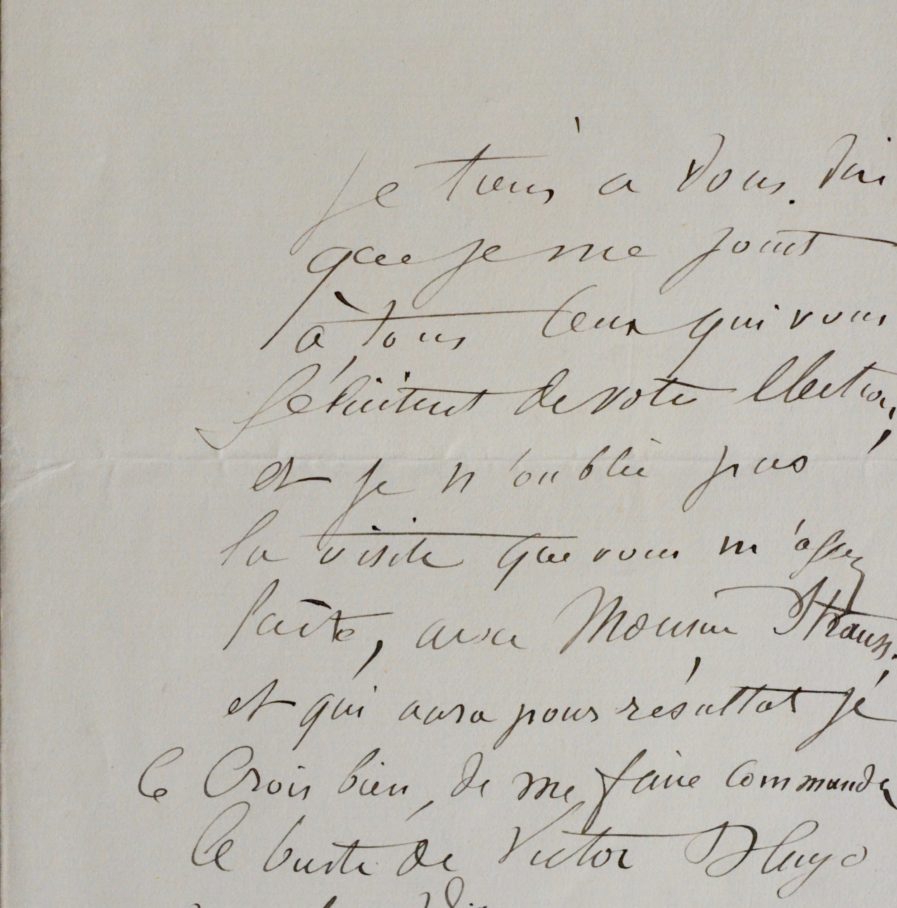 Je tiens à vous dire
que je me joint
à tous ceux qui vous
félicitent de votre Election,
et je n'oublie pas
la visite que vous m'
faite, avec Monsieur Strauss.
et qui aura pour résultat je
le Crois bien, de me faire commander
le buste de Victor Hugo